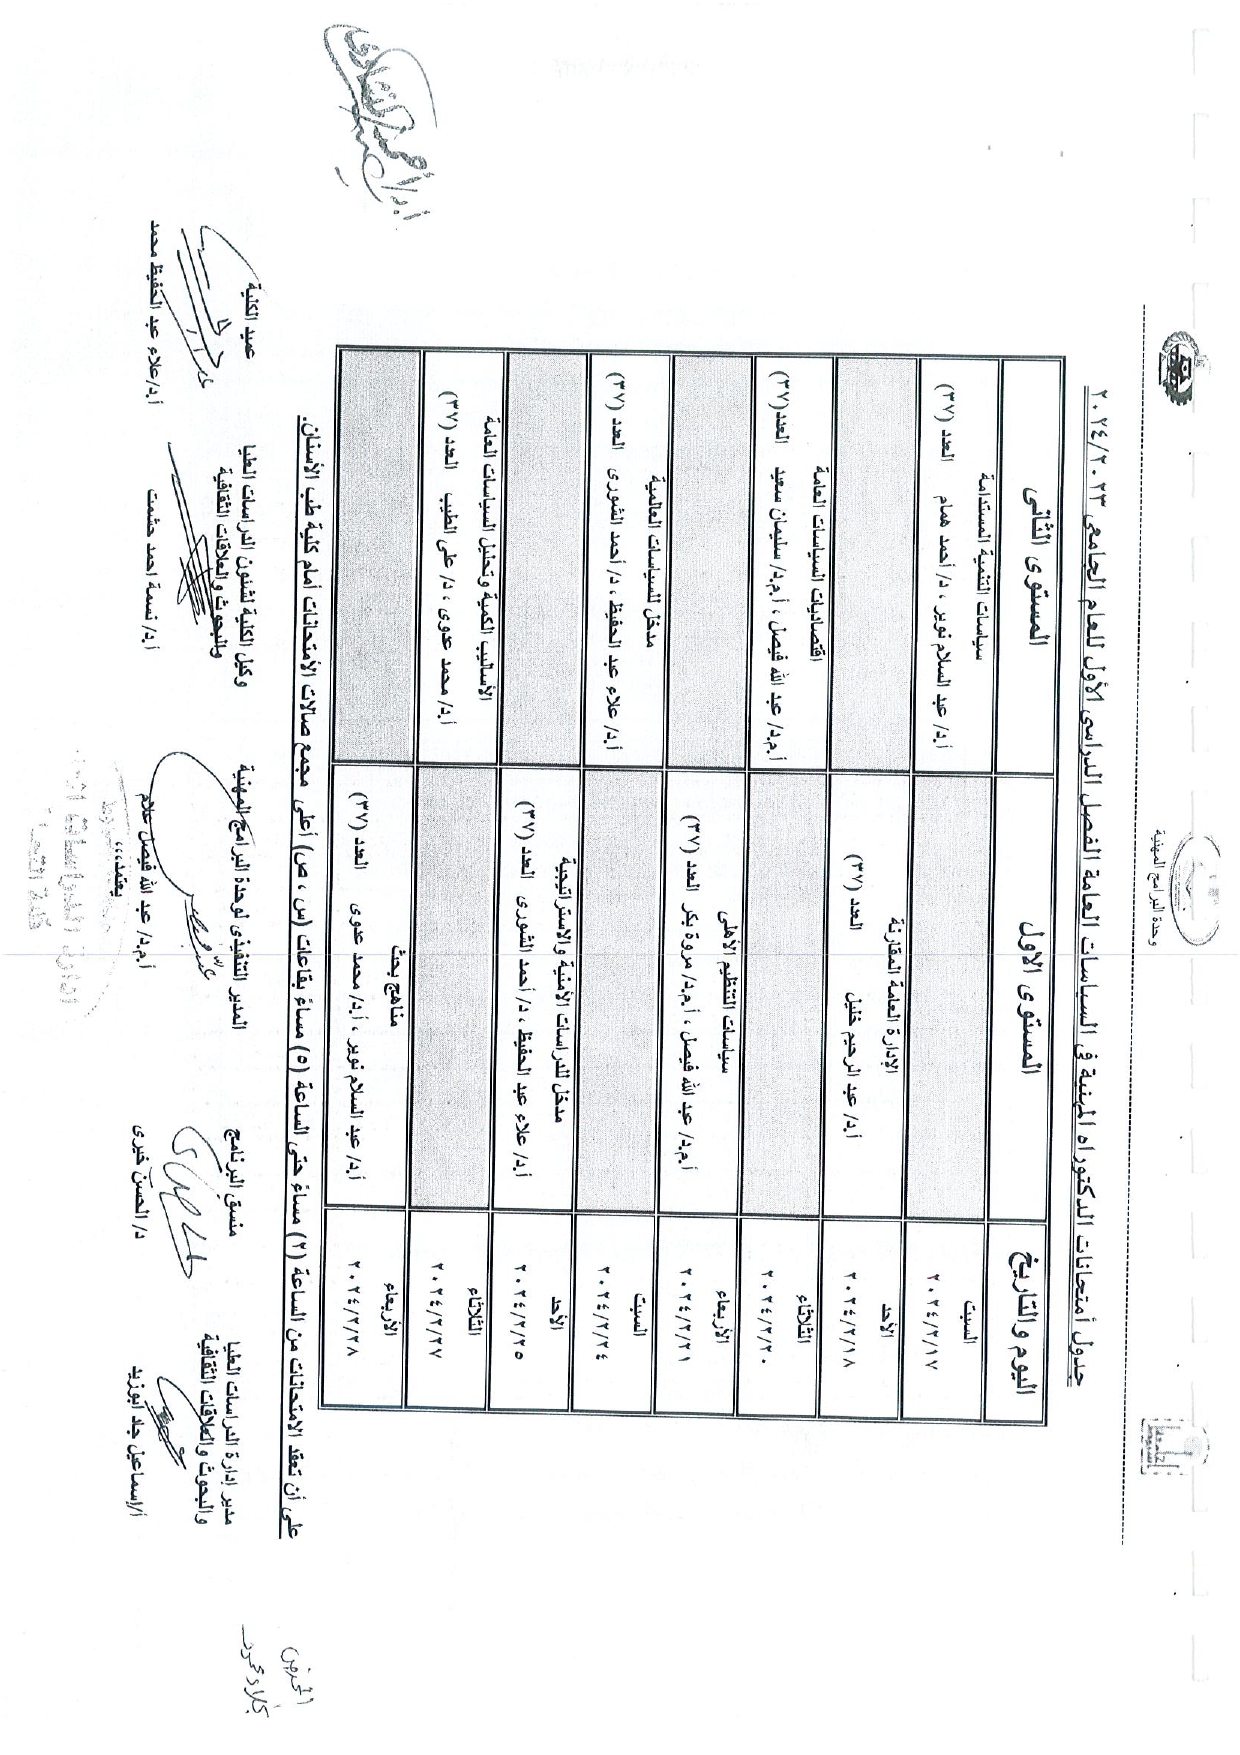 وحدة البرامج المهنية
جدول أمتحانات الدكتوراه المهنية فى السياسات العامة الفصل الدراسى الأول للعام الجامعى ٢٠٢٤/٢٠٢٣
اليوم والتاريخ المستوى الاول المستوى الثانى
السبت
٢٠٢٤/٢/١٧
سياسات التنمية المستدامة
أ.د/ عبد السلام نوير ، د/ أحمد همام العدد (٣٧)
الأحد
٢٠٢٤/٢/١٨
الإدارة العامة المقارنة
أ.د/ عبد الرحيم خليل العدد (٣٧)
الثلاثاء
٢٠٢٤/٢/٢٠
اقتصاديات السياسات العامة
أ.م.د/ عبد الله فيصل ، أ.م.د/ سليمان سعيد العدد(٣٧)
الأربعاء
٢٠٢٤/٢/٢١
سياسات التنظيم الأهلى
أ.م.د/ عبد الله فيصل ، أ.م.د/ مروة بكر العدد (٣٧)
السبت
٢٠٢٤/٢/٢٤
مدخل للسياسات العالمية
أ.د/ علاء عبد الحفيظ ، د/ أحمد الشورى العدد (٣٧)
الأحد
٢٠٢٤/٢/٢٥
مدخل للدراسات الأمنية والاستراتيجية
أ.د/ علاء عبد الحفيظ ، د/ أحمد الشورى العدد (٣٧)
الثلاثاء
٢٠٢٤/٢/٢٧
الأساليب الكمية وتحليل السياسات العامة
أ.د/ محمد عدوى ، د/ على الطيب العدد (٣٧)
الأربعاء
٢٠٢٤/٢/٢٨
مناهج بحث
أ.د/ عبد السلام نوير ، أ.د/ محمد عدوى العدد (٣٧)
على أن تعقد الامتحانات من الساعة (٢) مساءً حتى الساعة (٥) مساءً بقاعات (س ، ص) أعلى مجمع صالات الأمتحانات أمام كلية طب الأسنان.
مدير إدارة الدراسات العليا
والبحوث والعلاقات الثقافية
أ/إسماعيل جاد ابوزيد
منسق البرنامج
د/ الحسن خيرى
المدير التنفيذى لوحدة البرامج المهنية
أ.م.د/ عبد الله فيصل علام
يعتمد،،،
وكيل الكلية لشئون الدراسات العليا
والبحوث والعلاقات الثقافية
أ.د/ نسمة احمد حشمت
عميد الكلية
أ.د/علاء عبد الحفيظ محمد